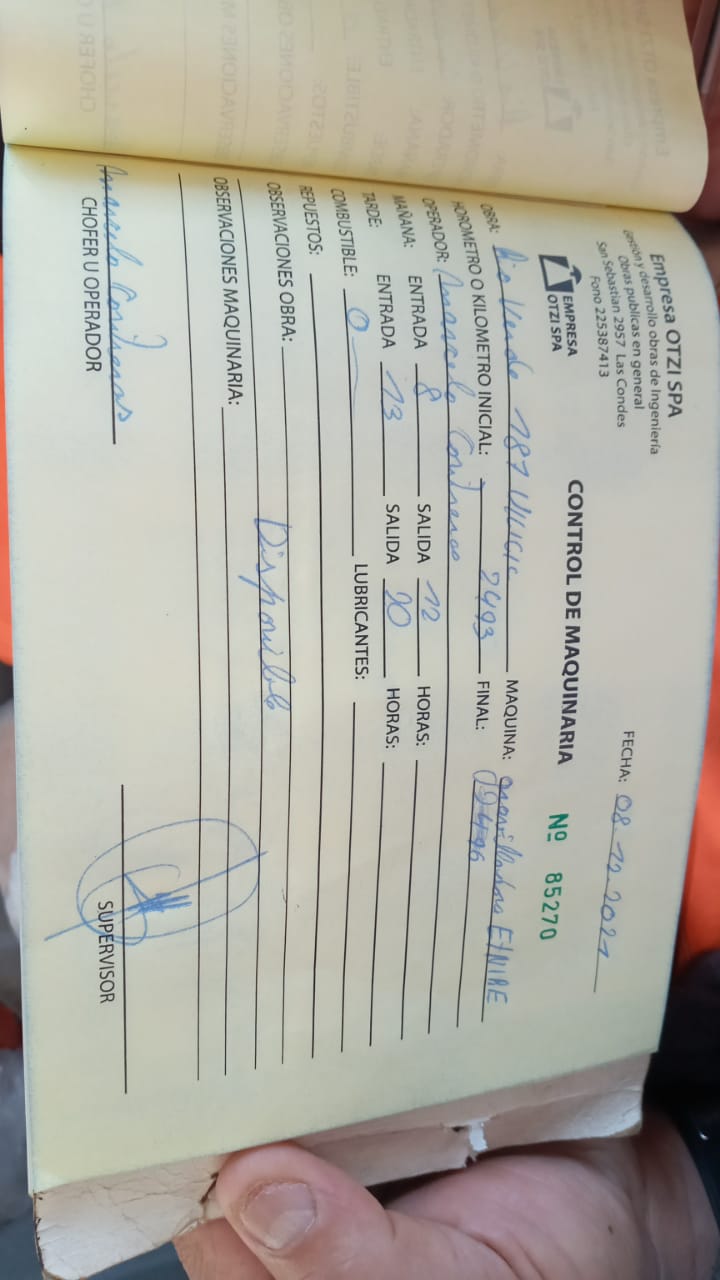 Empresa OTZI SPA
Gestión y desarrollo obras de Ingeniería
Obras publicas en general
San Sebastian 2957 Las Condes
Fono 225387413
EMPRESA
OTZI SPA
FECHA: 08.12.2021
CONTROL DE MAQUINARIA
Nº 85270
OBRA: Rio Verde 181 MAQUINA: gravilladora ETNIRE
HOROMETRO O KILOMETRO INICIAL: 2493 FINAL: 2496
OPERADOR: Marcelo Contreras
MAÑANA: ENTRADA 8 SALIDA 12 HORAS:
TARDE: ENTRADA 13 SALIDA 20 HORAS:
COMBUSTIBLE: 0 LUBRICANTES:
REPUESTOS:
OBSERVACIONES OBRA:
Disponible
OBSERVACIONES MAQUINARIA:
Marcelo Contreras
CHOFER U OPERADOR
SUPERVISOR